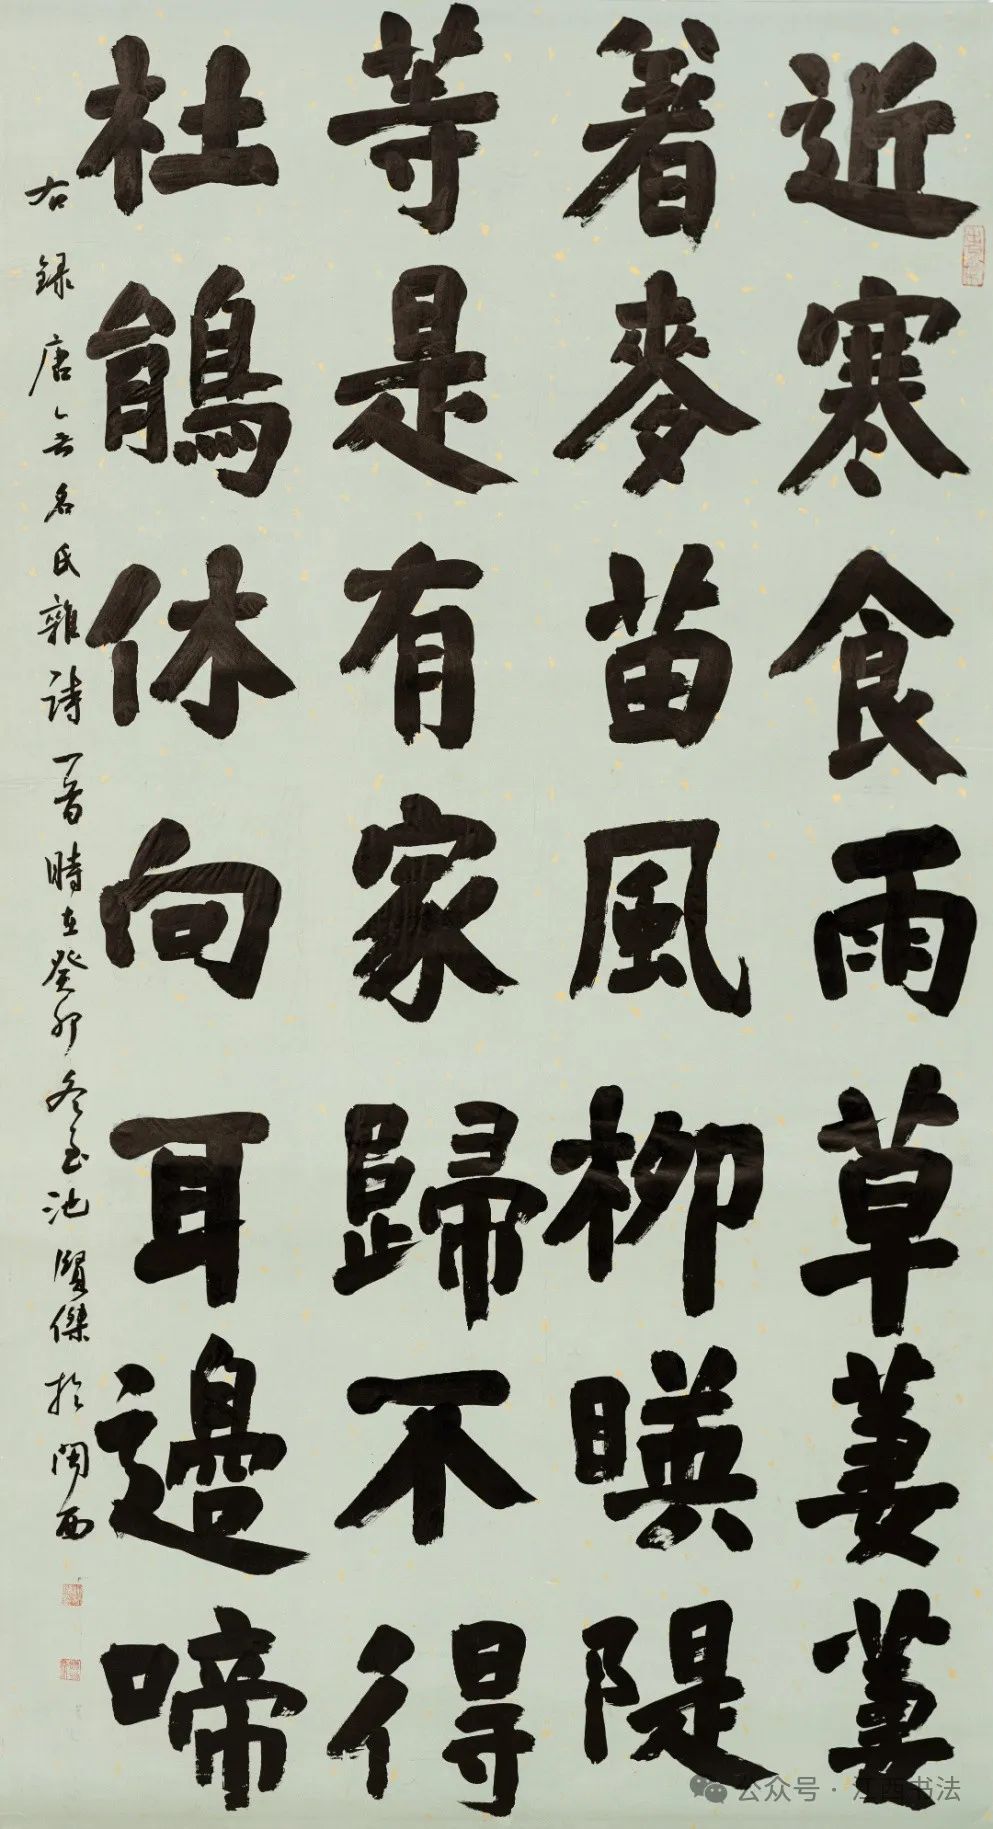 近寒食雨草萋萋
著麥苗風柳暎隄
等是有家歸不得
杜鵑休向耳邊啼
右録唐無名氏雜詩一首時在癸卯冬至池賢傑於閩西
公众号·江西书法